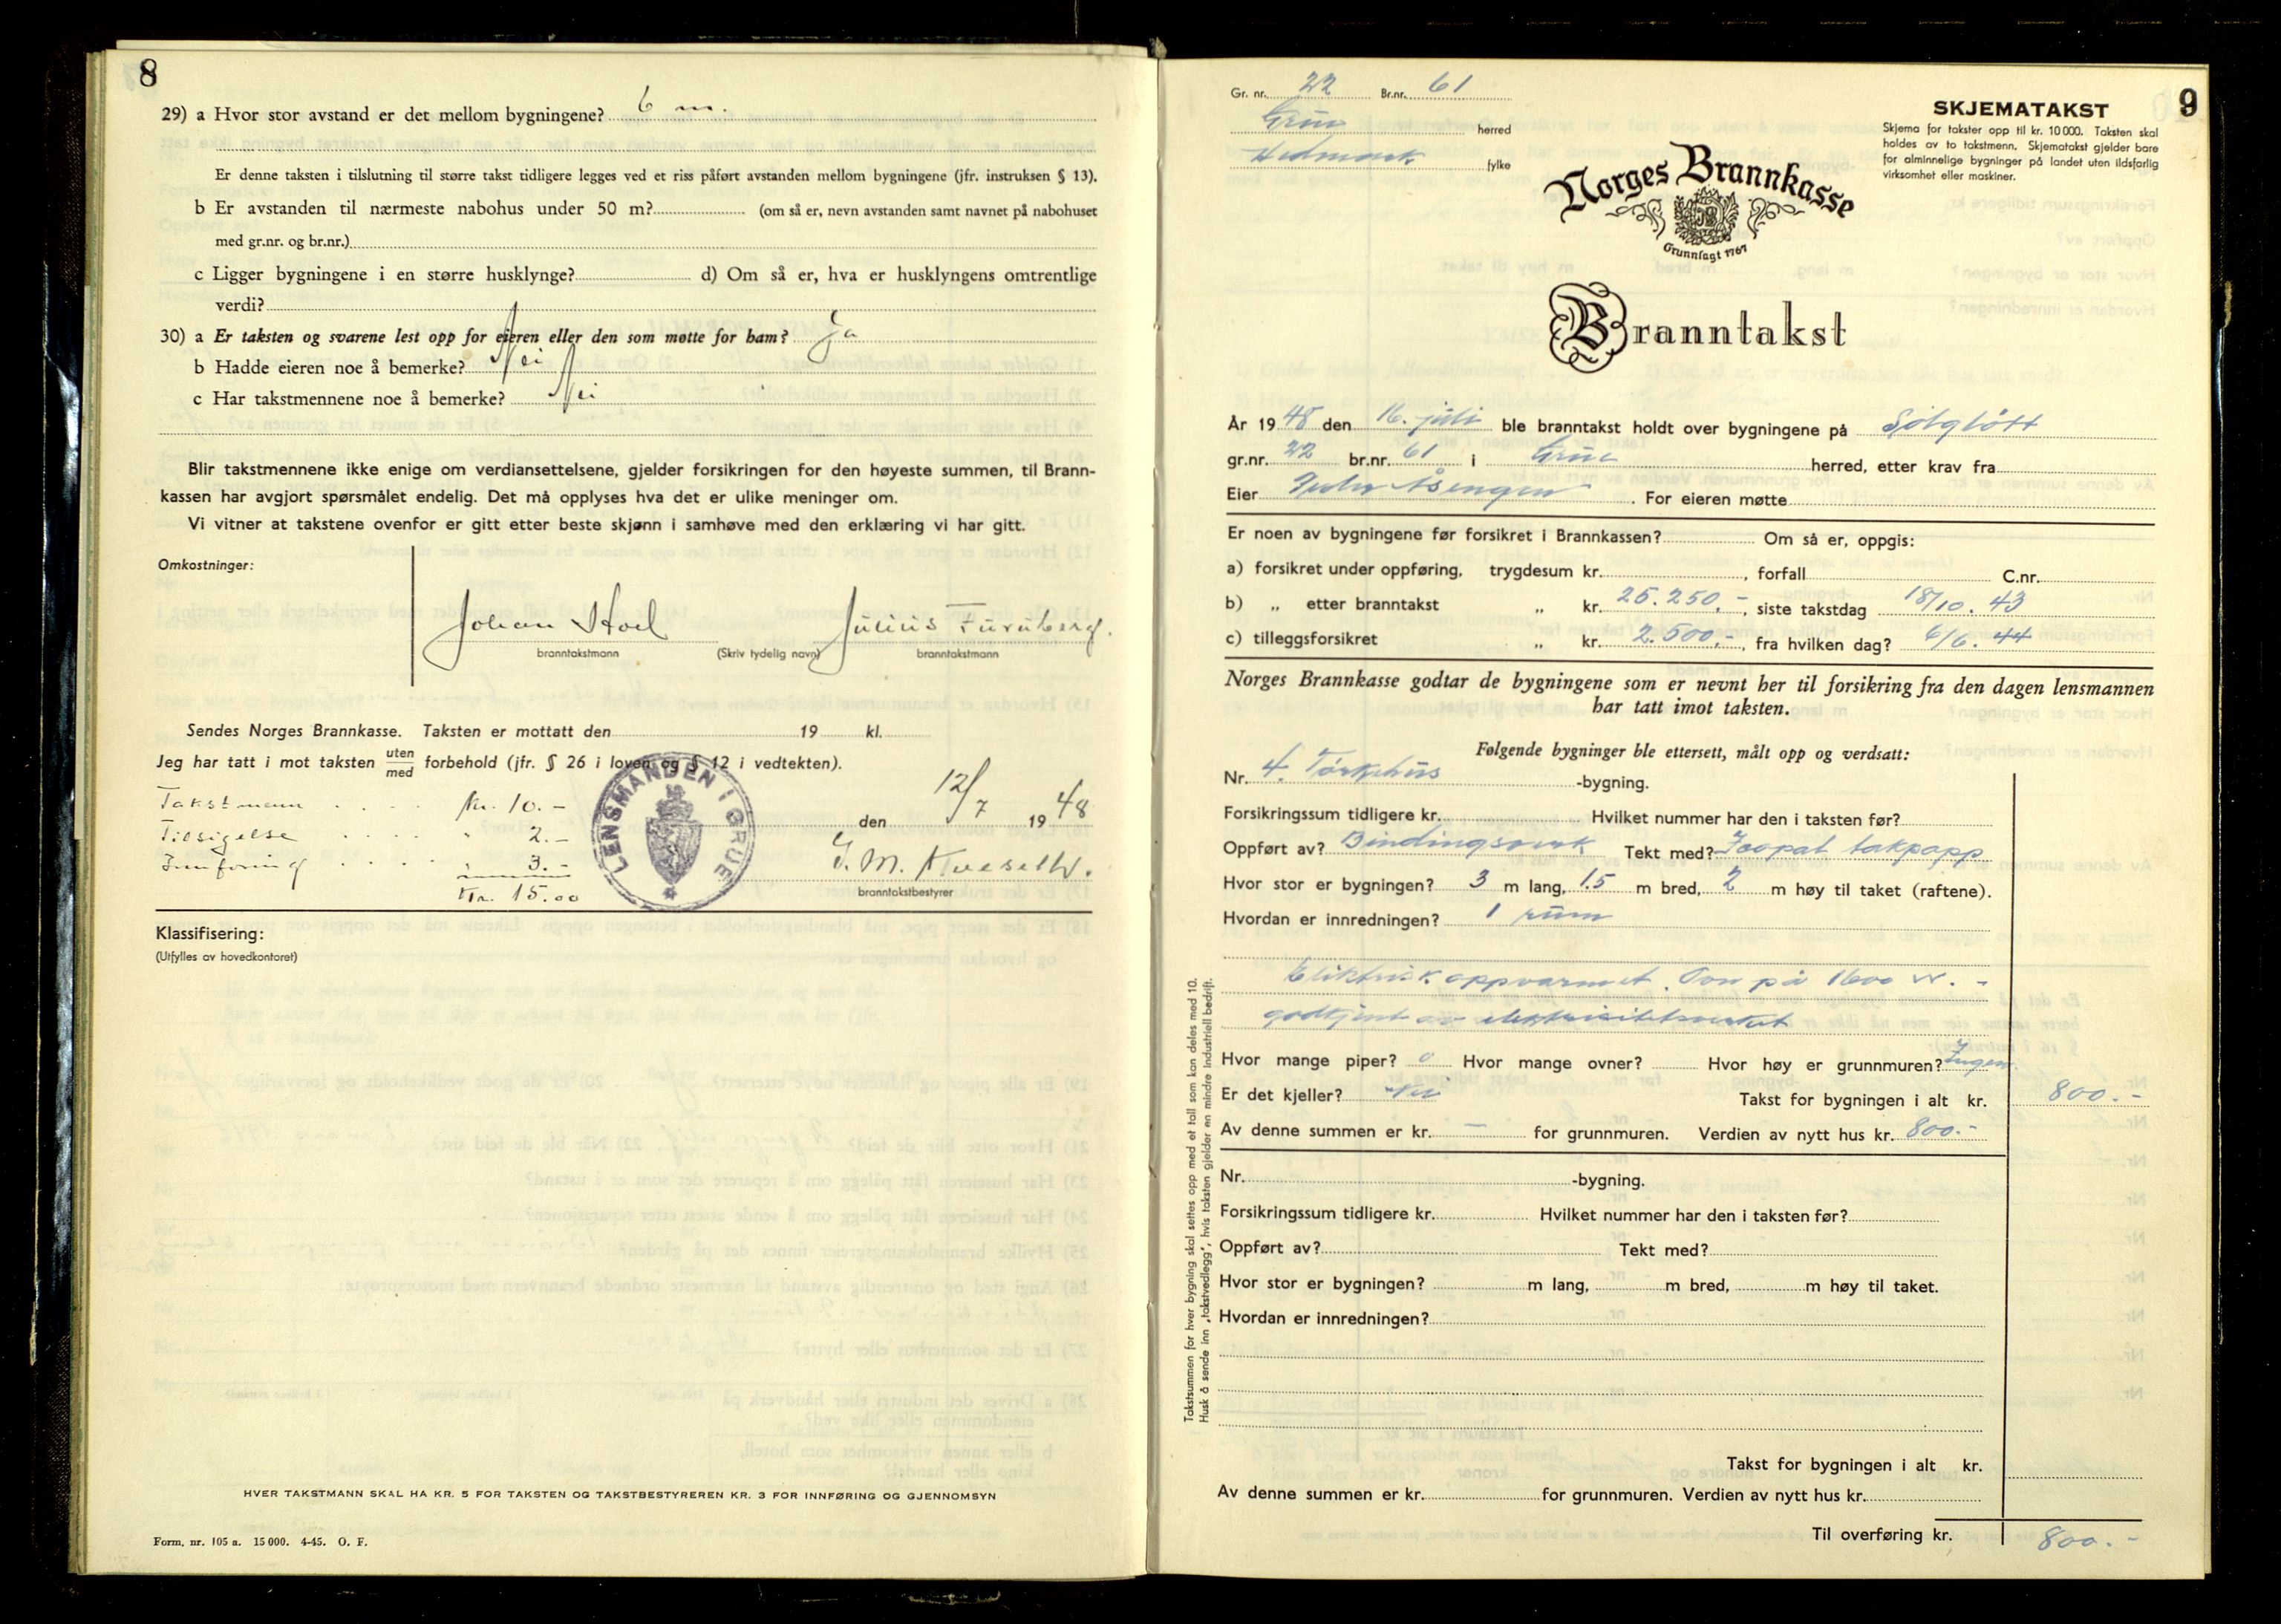 8
29) a Hvor stor avstand er det mellom bygningene? 6 m.
Er denne taksten i tilslutning til større takst tidligere legges ved et riss påført avstanden mellom bygningene (jfr. instruksen § 13).
b Er avstanden til nærmeste nabohus under 50 m? (om så er, nevn avstanden samt navnet på nabohuset
med gr.nr. og br.nr.)
c Ligger bygningene i en større husklynge? d) Om så er, hva er husklyngens omtrentlige
verdi?
30) a Er taksten og svarene lest opp for eieren eller den som møtte for ham? Ja
b Hadde eieren noe å bemerke? Nei
c Har takstmennene noe å bemerke? Nei
Blir takstmennene ikke enige om verdiansettelsene, gjelder forsikringen for den høyeste summen, til Brann-
kassen har avgjort spørsmålet endelig. Det må opplyses hva det er ulike meninger om.
Vi vitner at takstene ovenfor er gitt etter beste skjønn i samhøve med den erklæring vi har gitt.
Omkostninger:
Johan Hoel Julius Furuberg.
branntakstmann (Skriv tydelig navn) branntakstmann
Sendes Norges Brannkasse. Taksten er mottatt den 19 kl.
Jeg har tatt i mot taksten uten/med forbehold (jfr. § 26 i loven og § 12 i vedtekten).
Takstmenn . . . . Kr. 10.-
Tilsigelse . . . . " 2.-
Innføring . . . . " 3.-
Kr. 15.00
LENSMANDEN I GRUE
den 12/7 1948
branntakstbestyrer
Klassifisering:
(Utfylles av hovedkontoret)
HVER TAKSTMANN SKAL HA KR. 5 FOR TAKSTEN OG TAKSTBESTYREREN KR. 3 FOR INNFØRING OG GJENNOMSYN
Form. nr. 105 a. 15 000. 4-45. O. F.
9
Gr. nr. 22 Br.nr. 61
Grue herred
Hedmark fylke
SKJEMATAKST
Skjema for takster opp til kr. 10 000. Taksten skal
holdes av to takstmenn. Skjematakst gjelder bare
for alminnelige bygninger på landet uten ildsfarlig
virksomhet eller maskiner.
Norges Brannkasse
Grunnlagt 1767
Branntakst
År 1948 den 16. juli ble branntakst holdt over bygningene på Solgløtt
gr.nr. 22 br.nr. 61 i Grue herred, etter krav fra
Eier Peder Åsengen. For eieren møtte
Er noen av bygningene før forsikret i Brannkassen? Om så er, oppgis:
a) forsikret under oppføring, trygdesum kr. , forfall C.nr.
b) „ etter branntakst „ kr. 25.250,-, siste takstdag 18/10. 43
c) tilleggsforsikret „ kr. 2.500,-, fra hvilken dag? 6/6. 44
Norges Brannkasse godtar de bygningene som er nevnt her til forsikring fra den dagen lensmannen
har tatt imot taksten.
Følgende bygninger ble ettersett, målt opp og verdsatt:
Nr. 4. Tørkehus -bygning.
Forsikringssum tidligere kr. Hvilket nummer har den i taksten før?
Oppført av? Bindingsverk Tekt med? takpapp
Hvor stor er bygningen? 3 m lang, 1.5 m bred, 2 m høy til taket (raftene).
Hvordan er innredningen? 1 rum
Elektrisk oppvarmet. Ovn på 1600 W. -
godkjent av elektrisitetsverket
Hvor mange piper? 0 Hvor mange ovner? Hvor høy er grunnmuren? Ingen.
Er det kjeller? Nei Takst for bygningen i alt kr. 800.-
Av denne summen er kr. - for grunnmuren. Verdien av nytt hus kr. 800.-
Nr. -bygning.
Forsikringssum tidligere kr. Hvilket nummer har den i taksten før?
Oppført av? Tekt med?
Hvor stor er bygningen? m lang, m bred, m høy til taket.
Hvordan er innredningen?
Takst for bygningen i alt kr.
Av denne summen er kr. for grunnmuren. Verdien av nytt hus kr.
Til overføring kr. 800.-
Takstsummen for hver bygning skal settes opp med et tall som kan deles med 10.
Husk å sende inn „takstvedlegg", hvis taksten gjelder en mindre industriell bedrift.